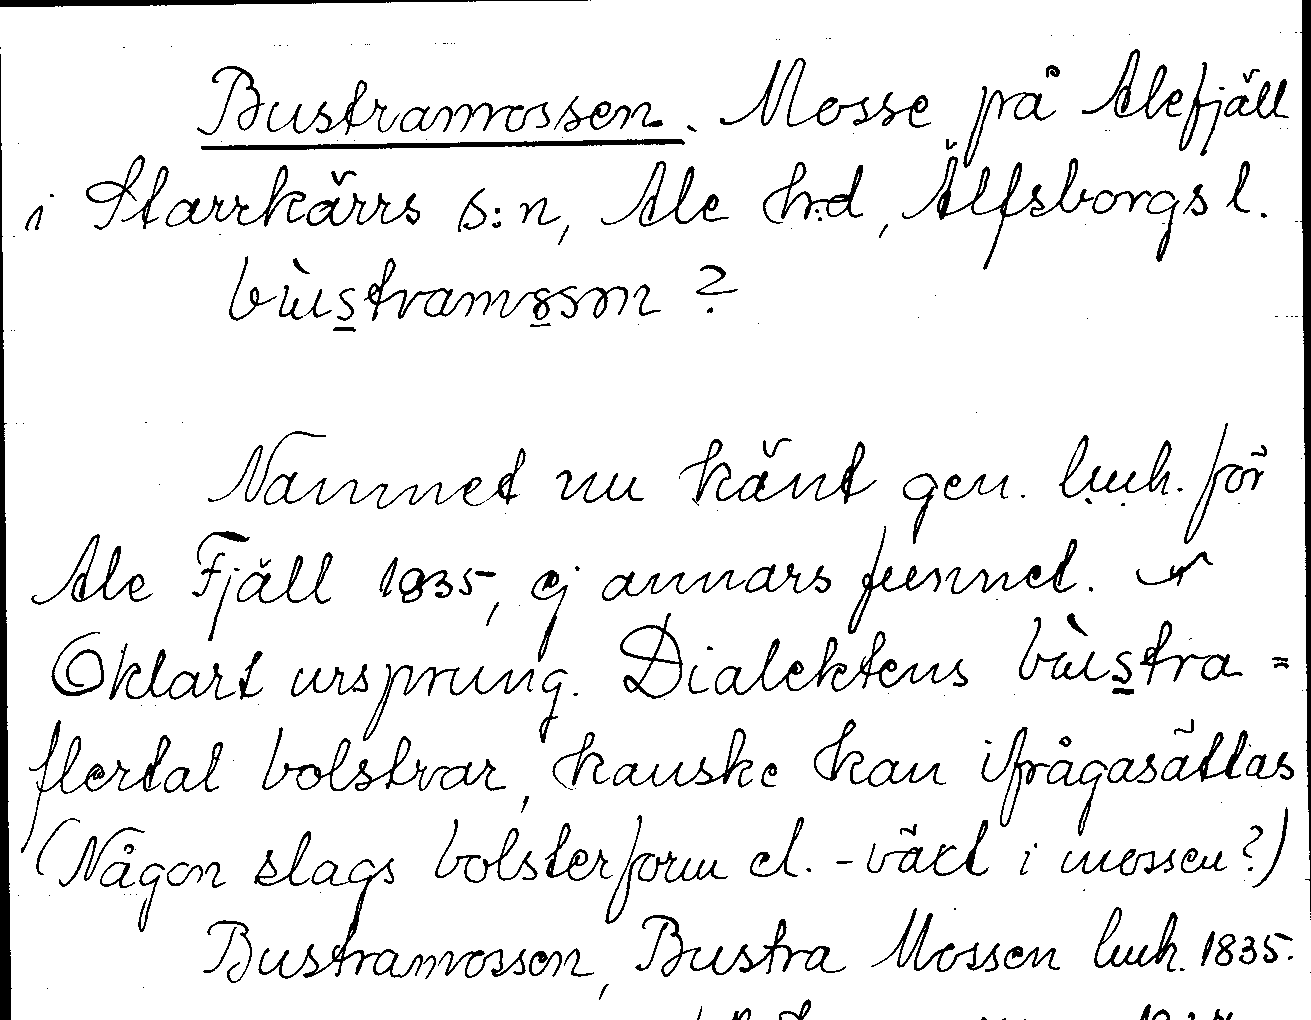 Bustramossen. Mosse på Alefjäll
i Starrkärrs s:n, Ale h:d, Älfsborgs l.
bùstramossen ?
Namnet nu känt gen. lmk. för
Ale Fjäll 1835, ej annars funnet.
Oklart ursprung. Dialektens bùstra =
flertal bolstrar, kanske kan ifrågasättas
(Någon slags bolsterform el. -växt i mossen?)
Bustramossen, Bustra Mossen lmk. 1835.